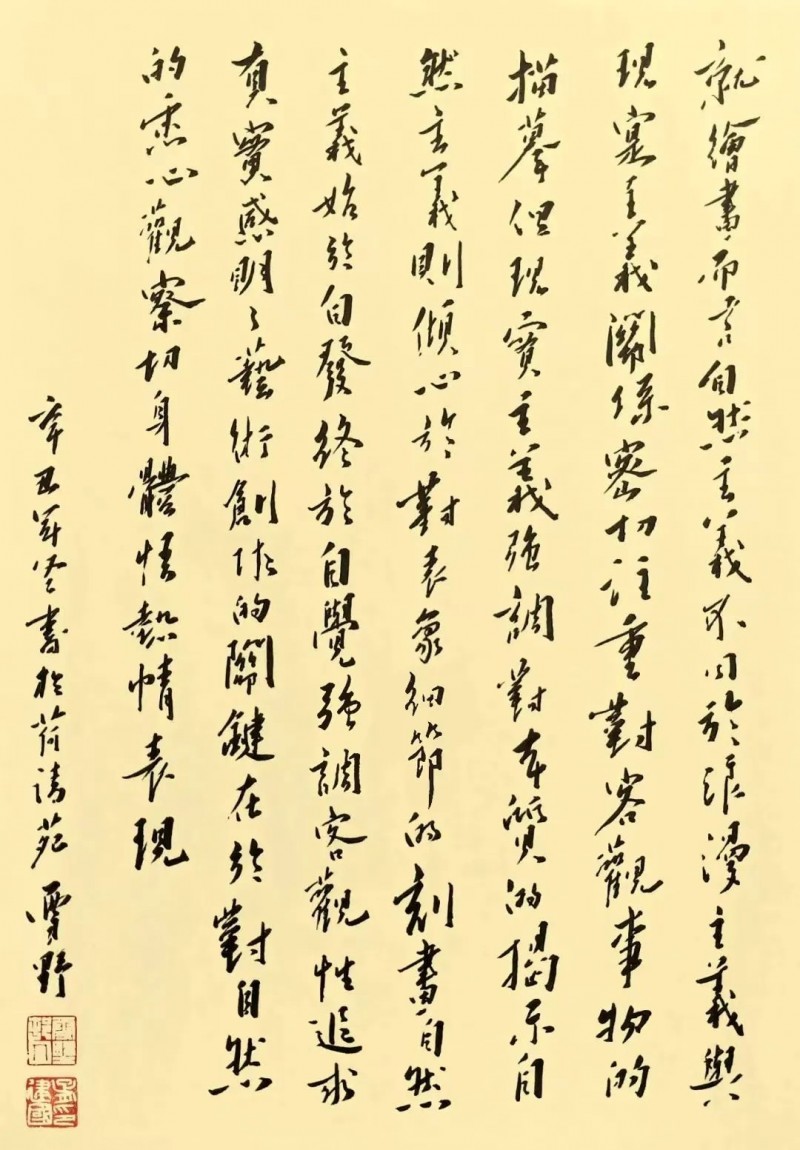 就繪畫而言自然主義不同於浪漫主義與
現實主義關係密切注重對客觀事物的
描摹但現實主義強調對本質的揭示自
然主義則傾心於對表象細節的刻畫自然
主義始於自發終於自覺強調客觀性追求
真實感明之藝術創作的關鍵在於對自然
的悉心觀察切身體悟熱情表現
辛丑年冬書於荷清苑 雪野
建國